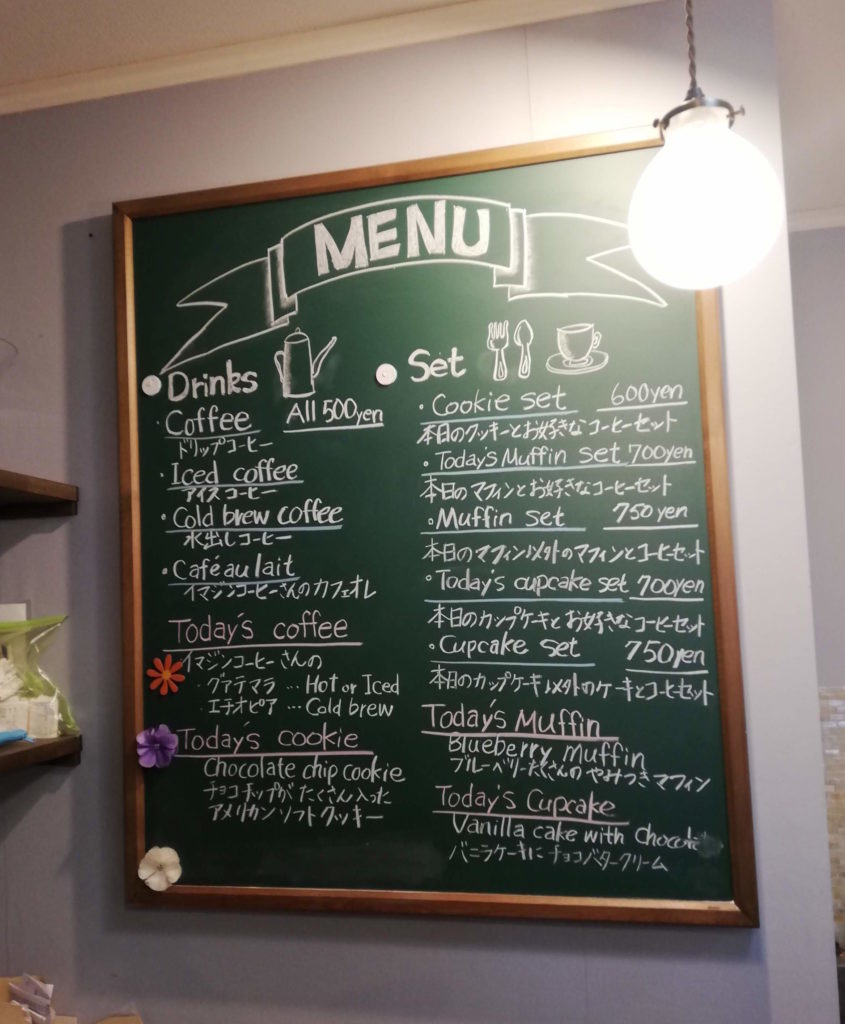 MENU
Drinks
・Coffee All 500yen
ドリップコーヒー
・Iced coffee
アイスコーヒー
・Cold brew coffee
水出しコーヒー
・Café au lait
イマジンコーヒーさんのカフェオレ
Today's coffee
イマジンコーヒーさんの
グァテマラ … Hot or Iced
エチオピア … Cold brew
Today's cookie
Chocolate chip cookie
チョコチップがたくさん入った
アメリカンソフトクッキー
Set
・Cookie set 600yen
本日のクッキーとお好きなコーヒーセット
・Today's Muffin set 700yen
本日のマフィンとお好きなコーヒーセット
・Muffin set 750yen
本日のマフィン以外のマフィンとコーヒーセット
・Today's cupcake set 700yen
本日のカップケーキとお好きなコーヒーセット
・Cupcake set 750yen
本日のカップケーキ以外のケーキとコーヒーセット
Today's Muffin
Blueberry muffin
ブルーベリーたくさんのやみつきマフィン
Today's Cupcake
Vanilla cake with
バニラケーキにチョコバタークリーム